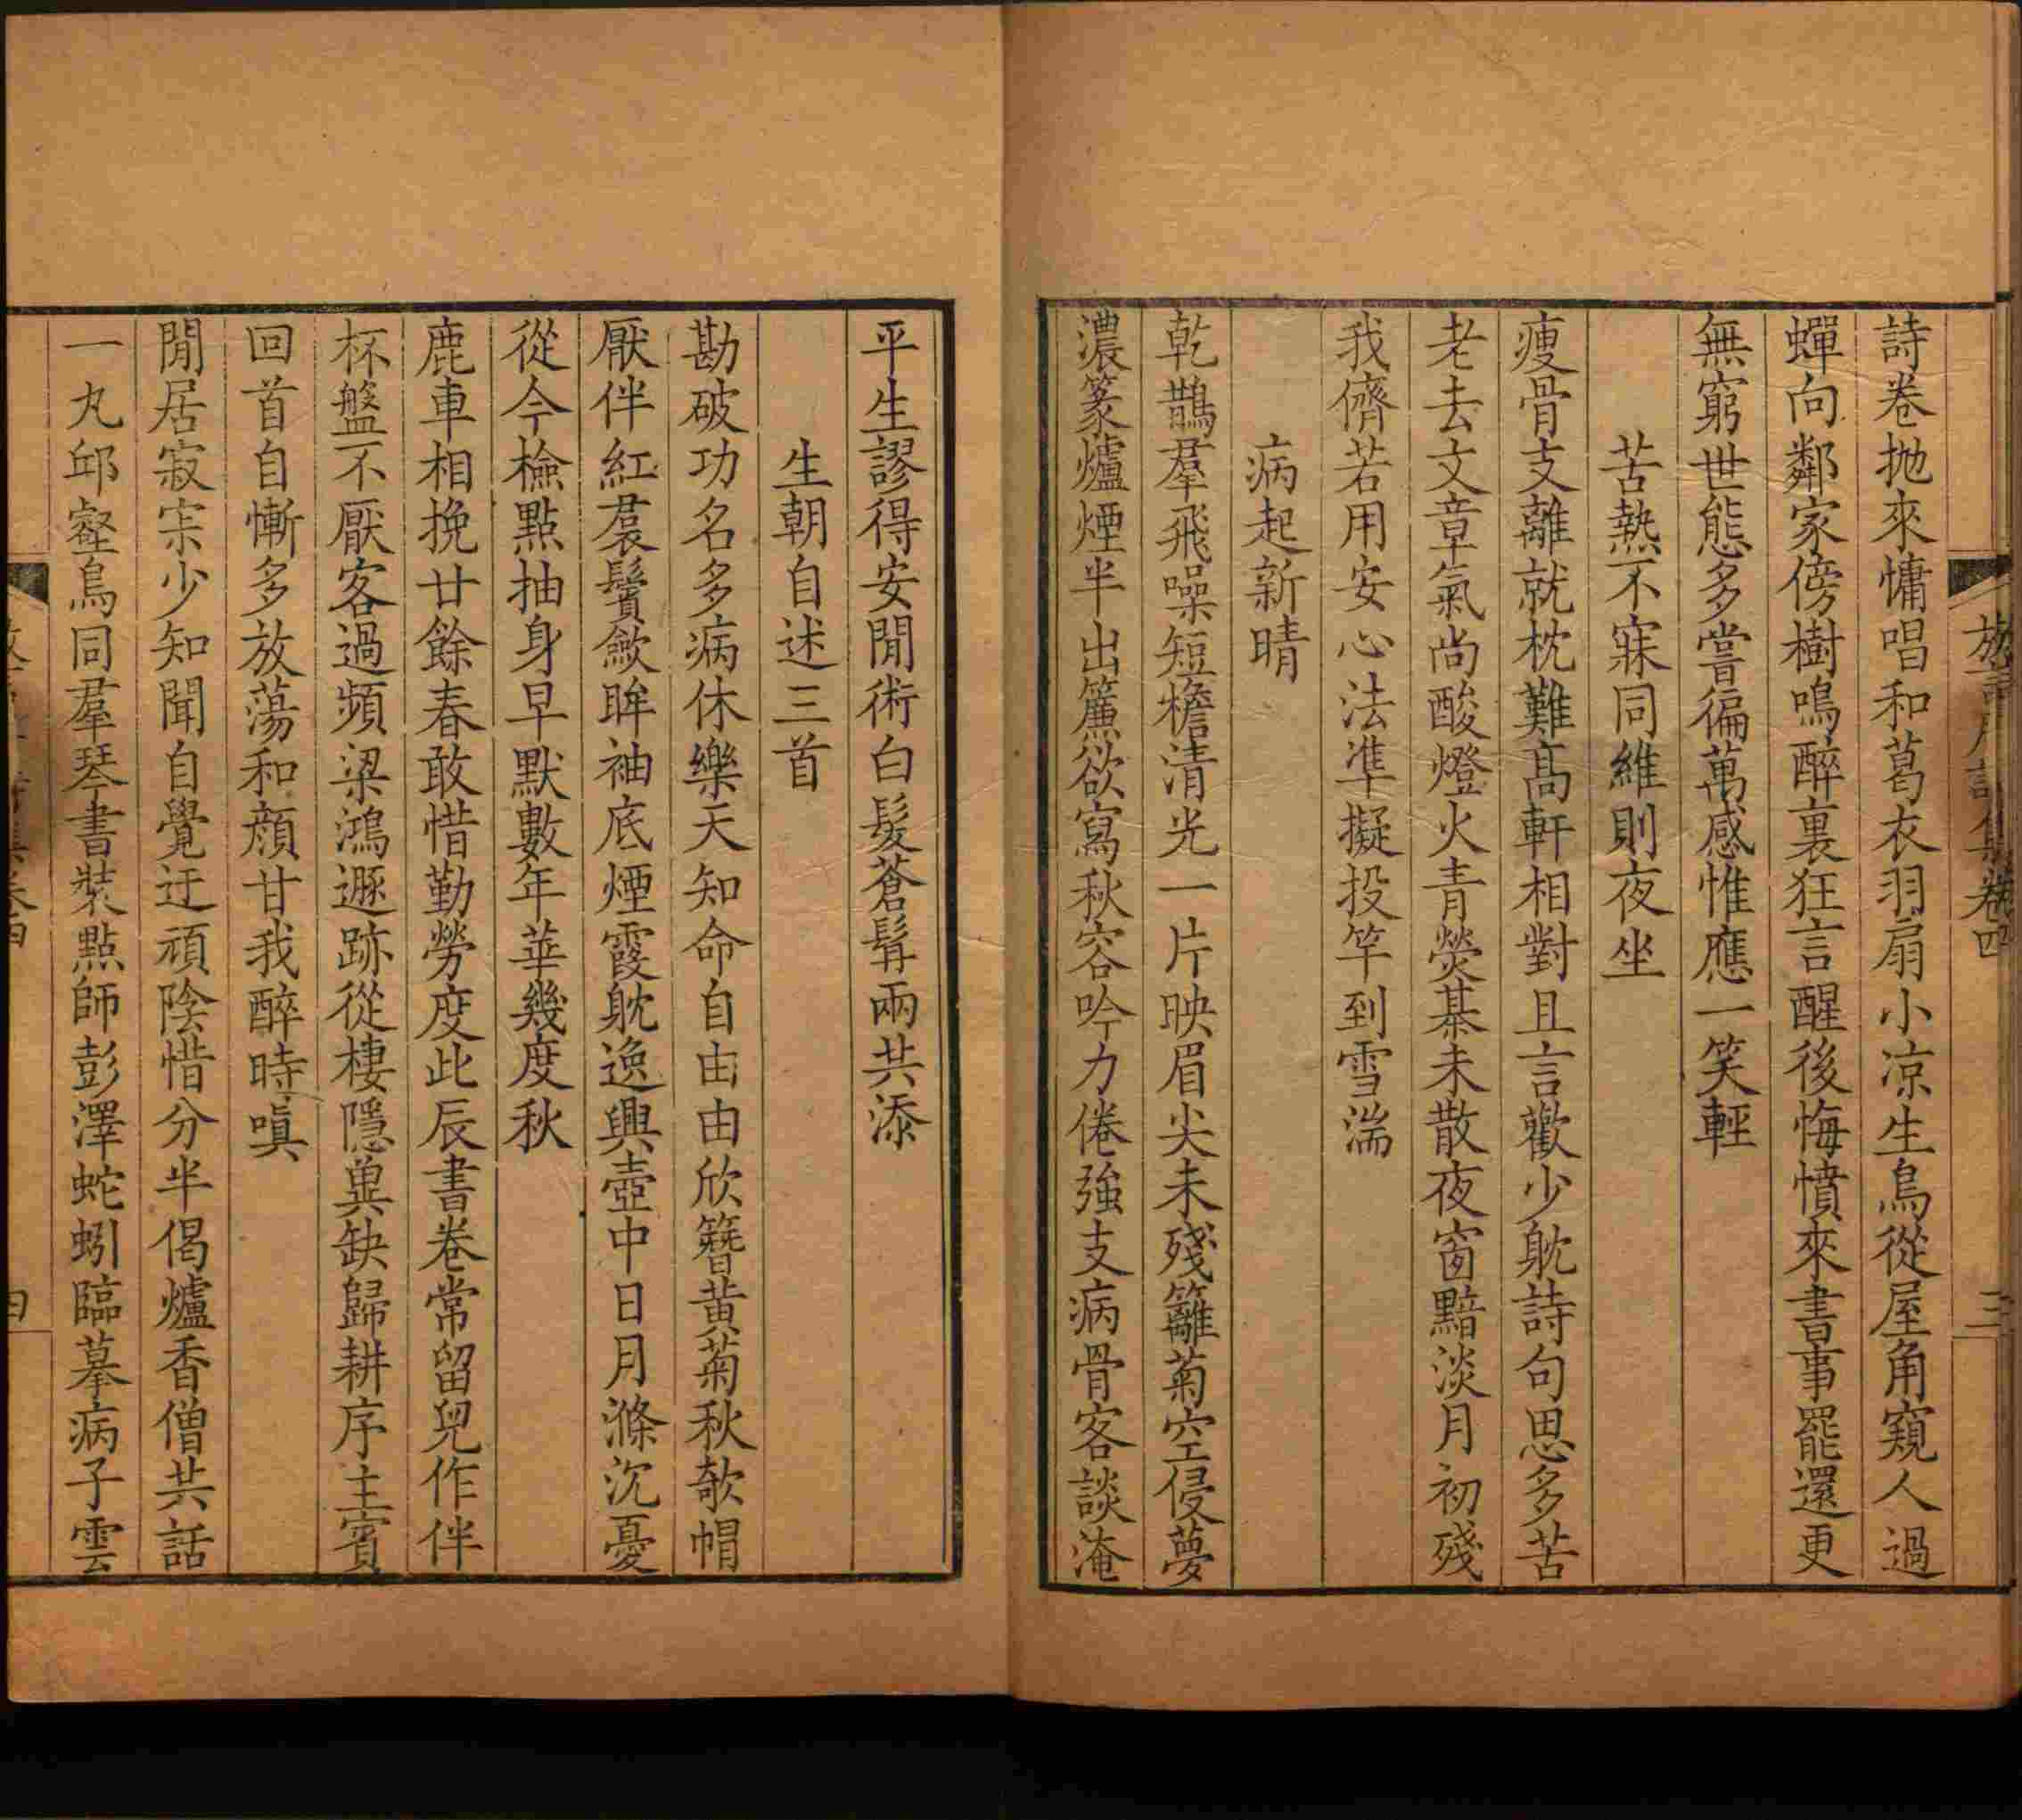 詩卷抛來慵唱和葛衣羽扇小涼生鳥從屋角窺人過
蟬向鄰家傍樹鳴醉裏狂言醒後悔憤來書事罷還更
無窮世態多嘗徧萬感惟應一笑輕
苦熱不寐同維則夜坐
瘦骨支離就枕難高軒相對且言歡少躭詩句思多苦
老去文章氣尚酸燈火青熒棊未散夜窗黯淡月初殘
我儕若用安心法準擬投竿到雪湍
病起新晴
乾鵲羣飛噪短檐清光一片映眉尖未殘籬菊空侵夢
濃篆爐煙半出簾欲寫秋容吟力倦強支病骨客談淹
平生謬得安閒術白髮蒼髯兩共添
生朝自述三首
勘破功名多病休樂天知命自由由欣簪黃菊秋欹帽
厭伴紅裠鬢斂眸袖底煙霞躭逸興壺中日月滌沉憂
從今檢點抽身早默數年華幾度秋
鹿車相挽廿餘春敢惜勤勞度此辰書卷常留兒作伴
杯盤不厭客過頻梁鴻遯跡從棲隱兾缺歸耕序主賓
回首自慚多放蕩和顏甘我醉時嗔
閒居寂寞少知聞自覺迂頑陰惜分半偈爐香僧共話
一丸邱壑鳥同羣琴書裝點師彭澤蛇蚓臨摹病子雲
卷四
三